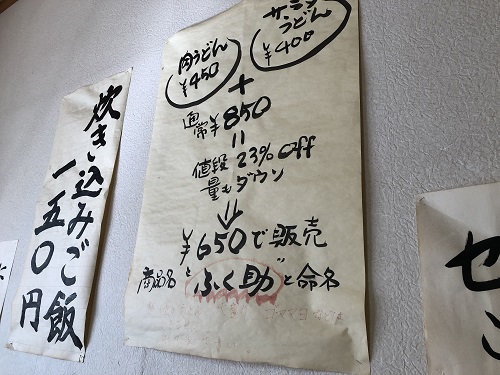 肉うどん
¥450
サラダ
うどん
¥400
+
通常¥850
=
値段 23%off
量もダウン
⇓
¥650で販売
商品名 "ふく助" と命名
炊き込みご飯
一五〇円
セ